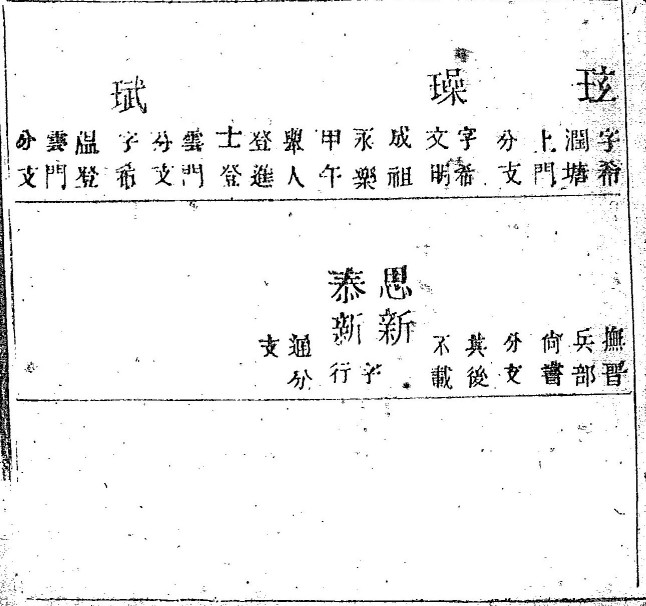 玹
字希
潤塘
上門
分支
璪
字希
文明
成祖
永樂
甲午
舉人
登進
士登
雲門
分支
珷
字希
溫登
雲門
分支
撫晋
兵部
尙書
分支
其後
不載
思新
泰新
字行
通分
支